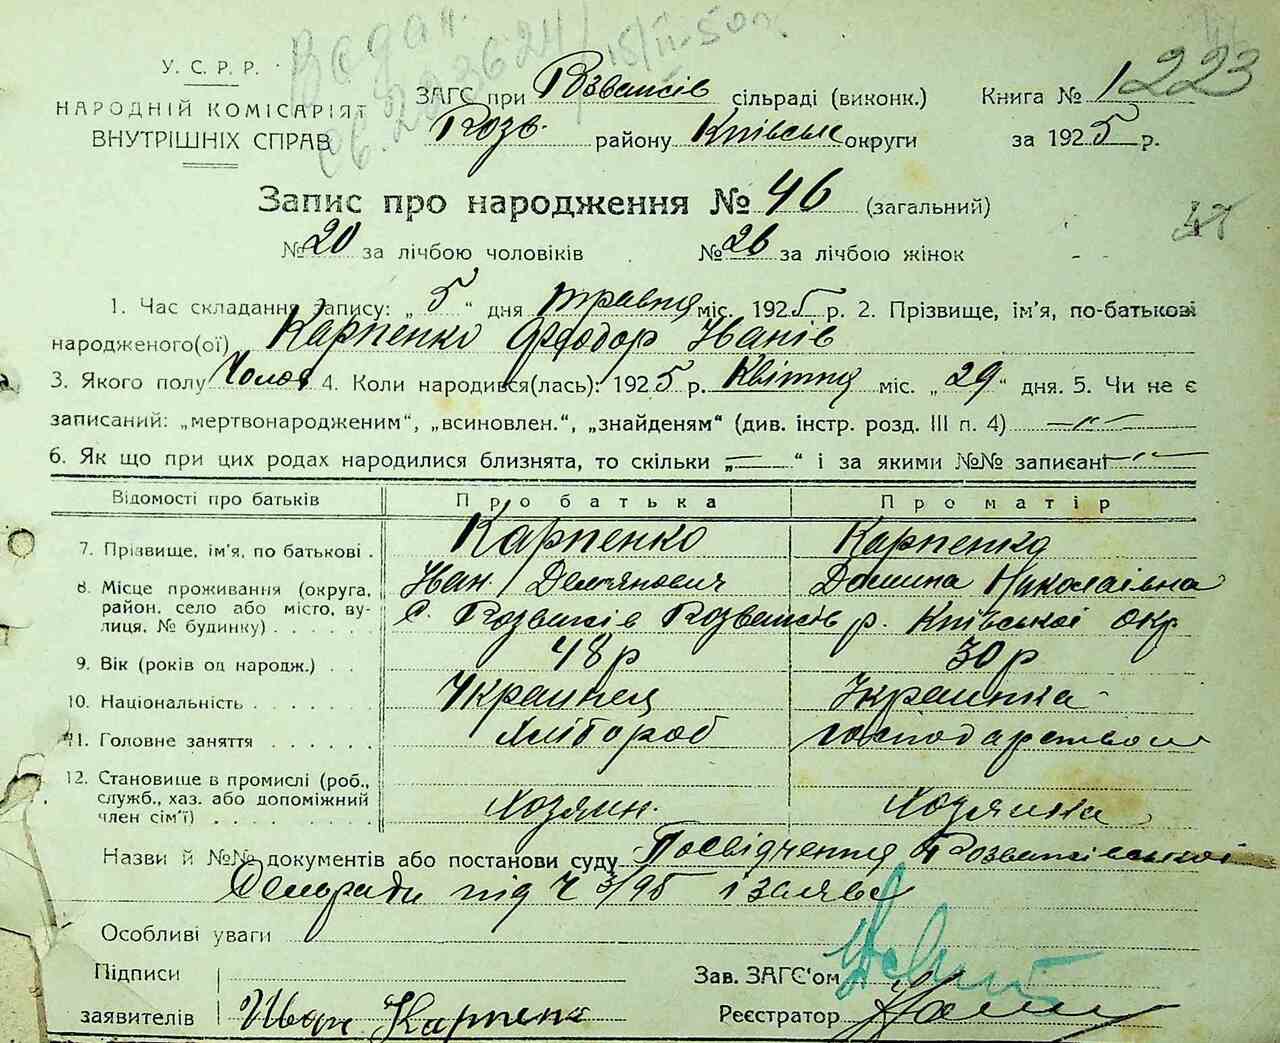 У. С. Р. Р.
НАРОДНІЙ КОМІСАРІЯТ
ВНУТРІШНІХ СПРАВ
ЗАГС при Розважів сільраді (виконк.)
Розв. району Київськ округи
Книга № 1 223
за 1925 р.
Запис про народження № 46 (загальний)
№ 20 за лічбою чоловіків № 26 за лічбою жінок
1. Час складання запису: „5“ дня травня міс. 1925 р. 2. Прізвище, ім'я, по-батькові
народженого(ої) Карпенко Феодор Іванів
3. Якого полу Чолов 4. Коли народився(лась): 1925 р. Квітня міс. „29“ дня. 5. Чи не є
записаний: „мертвонародженим“, „всиновлен.“, „знайденям“ (див. інстр. розд. III п. 4) —„—
6. Як що при цих родах народилися близнята, то скільки „—“ і за якими №№ записані —„—
Відомості про батьків Про батька Про матір
7. Прізвище, ім'я, по батькові . Карпенко Карпенко
Іван Демянович Домина Николаівна
8. Місце проживання (округа, район, село або місто, вулиця, № будинку) . . . . . с. Розважів Розважів р. Київської окр
9. Вік (років од народж.) . . 48 р 30 р
10. Національність . . . . . . . Украинец Украинка
11. Головне заняття . . . . . . Хлібороб господарством
12. Становище в промислі (роб., служб., хаз. або допоміжний член сім'ї) . . . . . . . Хозяин. Хозяина
Назви й №№ документів або постанови суду Посвідчення Розважівської
Сельради під ч 3/95 і заява
Особливі уваги
Підписи
заявителів Иван Карпенк
Зав. ЗАГС'ом
Реєстратор